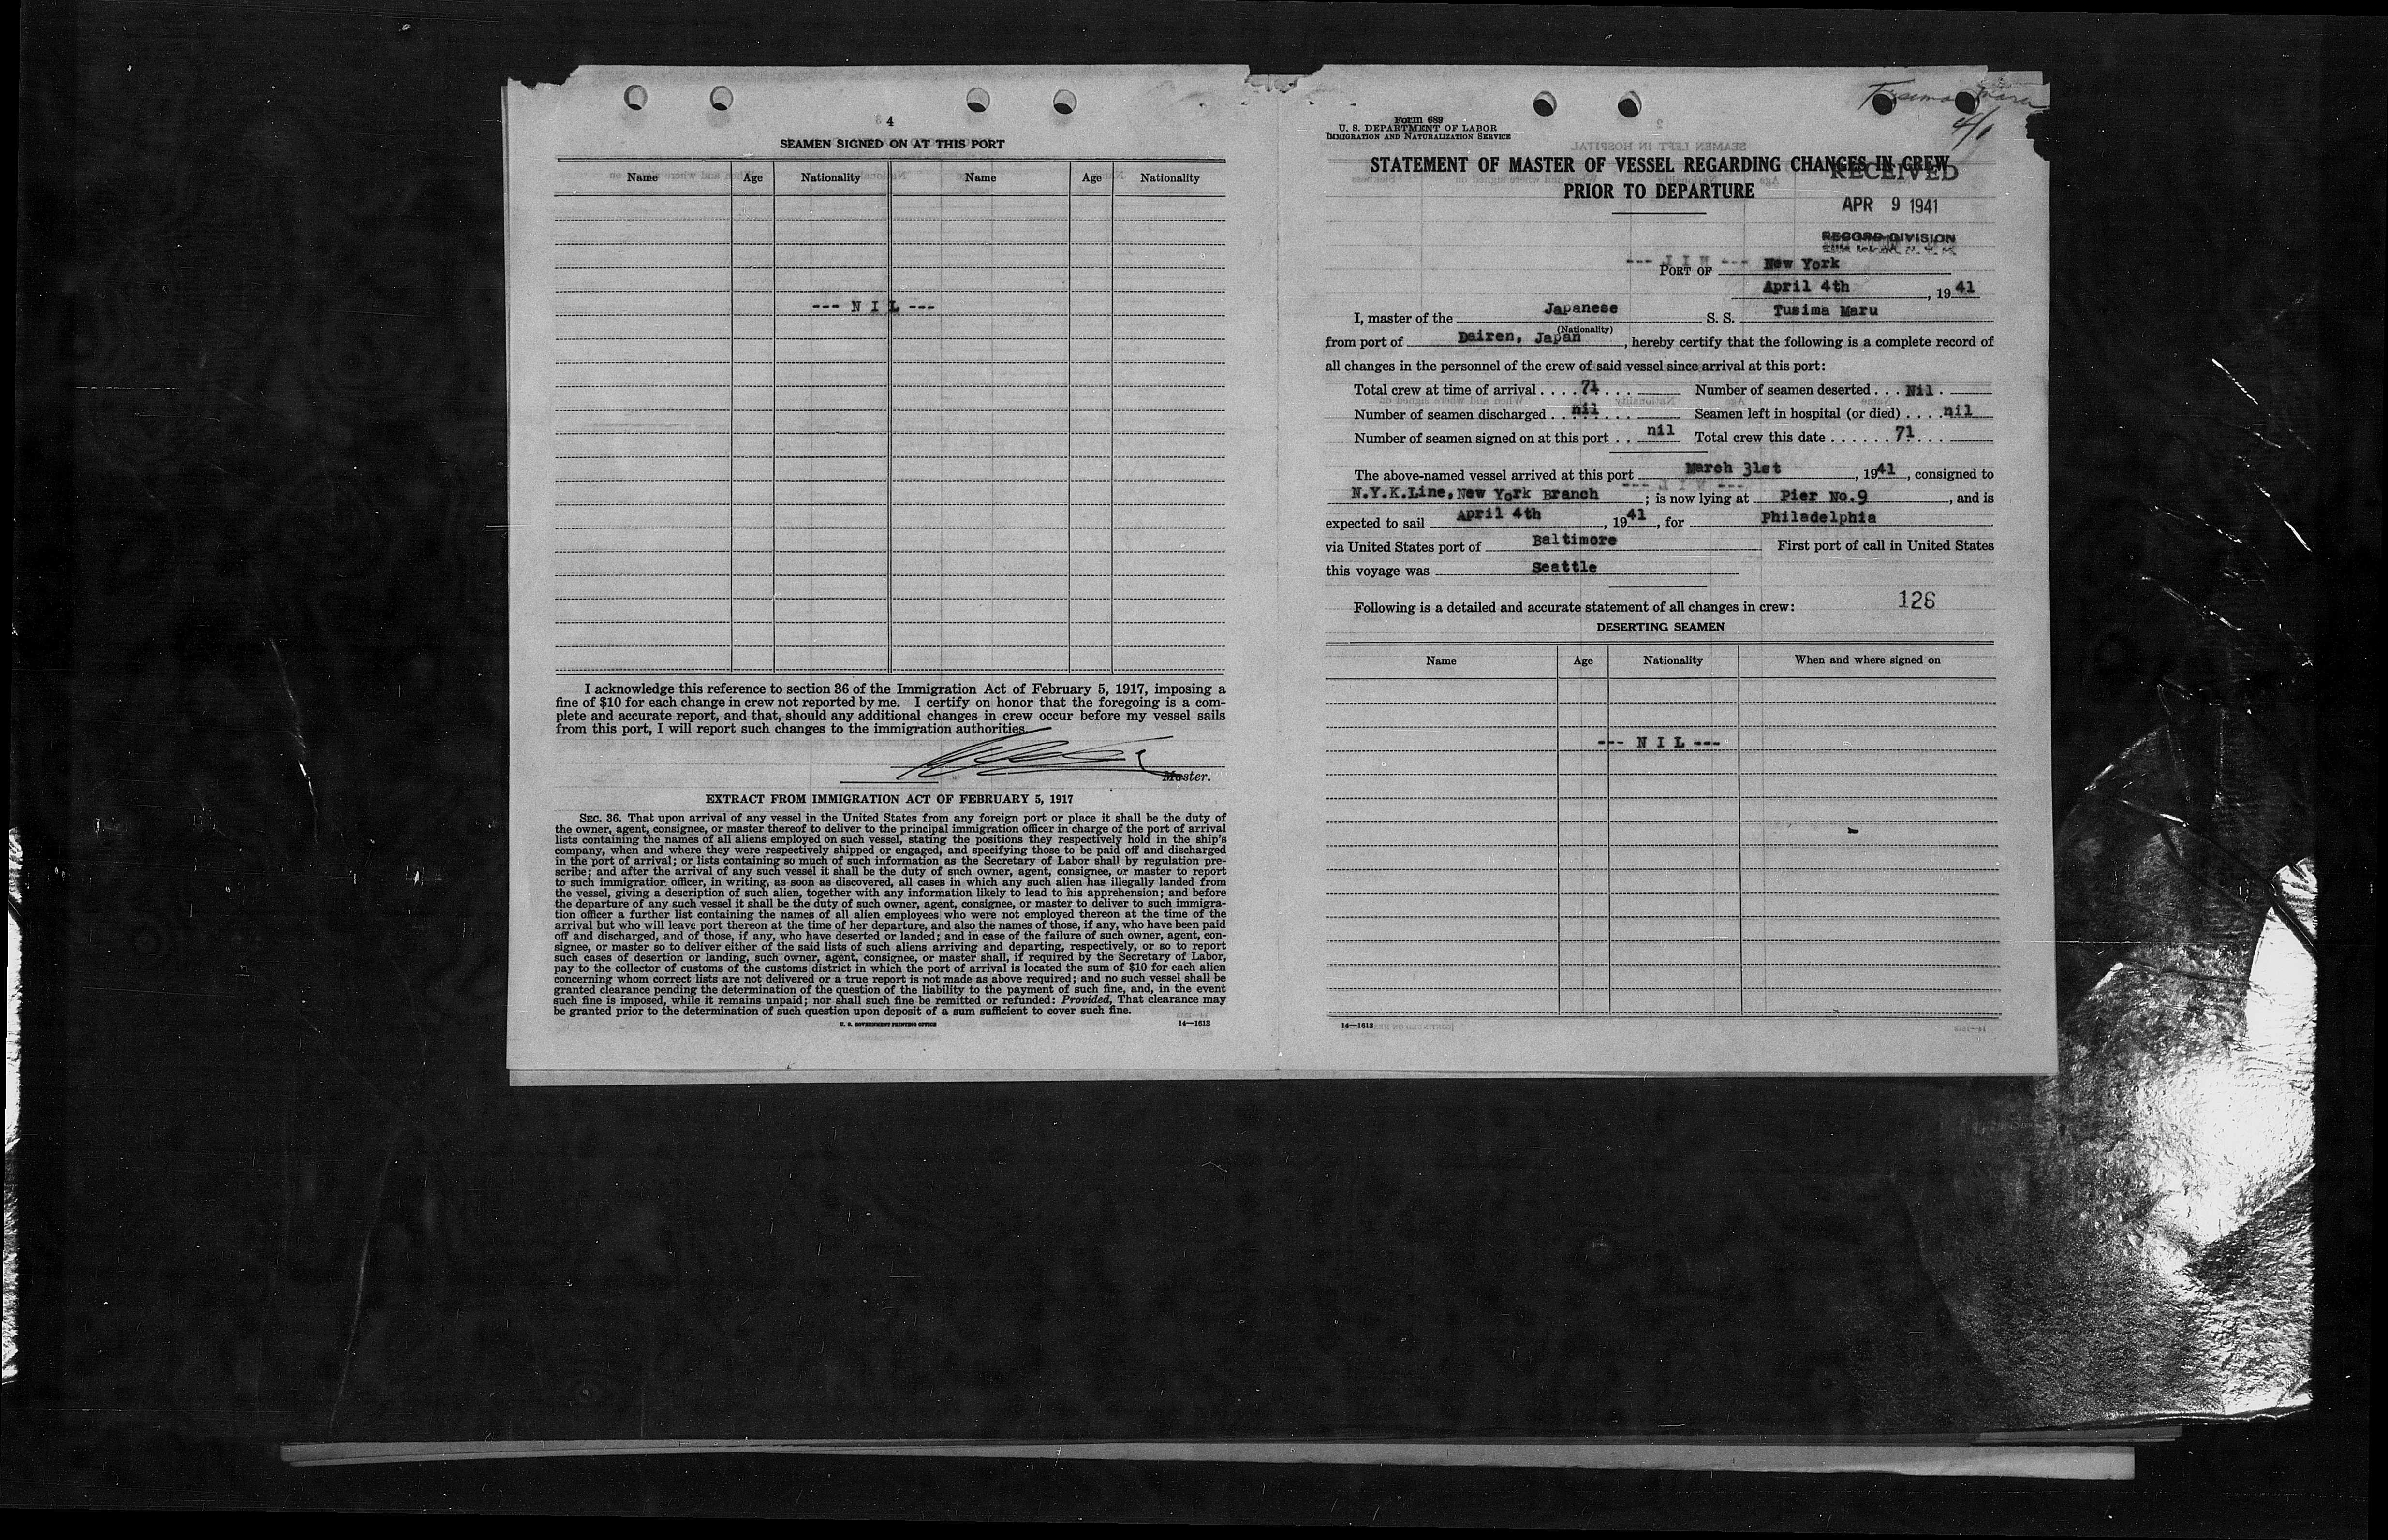 4
SEAMEN SIGNED ON AT THIS PORT
Name Age Nationality Name Age Nationality
--- N I L ---
I acknowledge this reference to section 36 of the Immigration Act of February 5, 1917, imposing a
fine of $10 for each change in crew not reported by me. I certify on honor that the foregoing is a com-
plete and accurate report, and that, should any additional changes in crew occur before my vessel sails
from this port, I will report such changes to the immigration authorities.
Master.
EXTRACT FROM IMMIGRATION ACT OF FEBRUARY 5, 1917
SEC. 36. That upon arrival of any vessel in the United States from any foreign port or place it shall be the duty of
the owner, agent, consignee, or master thereof to deliver to the principal immigration officer in charge of the port of arrival
lists containing the names of all aliens employed on such vessel, stating the positions they respectively hold in the ship's
company, when and where they were respectively shipped or engaged, and specifying those to be paid off and discharged
in the port of arrival; or lists containing so much of such information as the Secretary of Labor shall by regulation pre-
scribe; and after the arrival of any such vessel it shall be the duty of such owner, agent, consignee, or master to report
to such immigration officer, in writing, as soon as discovered, all cases in which any such alien has illegally landed from
the vessel, giving a description of such alien, together with any information likely to lead to his apprehension; and before
the departure of any such vessel it shall be the duty of such owner, agent, consignee, or master to deliver to such immigra-
tion officer a further list containing the names of all alien employees who were not employed thereon at the time of the
arrival but who will leave port thereon at the time of her departure, and also the names of those, if any, who have been paid
off and discharged, and of those, if any, who have deserted or landed; and in case of the failure of such owner, agent, con-
signee, or master so to deliver either of the said lists of such aliens arriving and departing, respectively, or so to report
such cases of desertion or landing, such owner, agent, consignee, or master shall, if required by the Secretary of Labor,
pay to the collector of customs of the customs district in which the port of arrival is located the sum of $10 for each alien
concerning whom correct lists are not delivered or a true report is not made as above required; and no such vessel shall be
granted clearance pending the determination of the question of the liability to the payment of such fine, and, in the event
such fine is imposed, while it remains unpaid; nor shall such fine be remitted or refunded: Provided, That clearance may
be granted prior to the determination of such question upon deposit of a sum sufficient to cover such fine.
U. S. GOVERNMENT PRINTING OFFICE 14—1613
Form 689
U. S. DEPARTMENT OF LABOR
IMMIGRATION AND NATURALIZATION SERVICE
STATEMENT OF MASTER OF VESSEL REGARDING CHANGES IN CREW
PRIOR TO DEPARTURE
RECEIVED
APR 9 1941
RECORD DIVISION
PORT OF New York
April 4th, 1941
I, master of the Japanese S. S. Tusima Maru
(Nationality)
from port of Dairen, Japan, hereby certify that the following is a complete record of
all changes in the personnel of the crew of said vessel since arrival at this port:
Total crew at time of arrival .... 71 ... Number of seamen deserted ... Nil .
Number of seamen discharged .. nil ... Seamen left in hospital (or died) .... nil
Number of seamen signed on at this port .. nil Total crew this date ...... 71 ...
The above-named vessel arrived at this port March 31st, 1941, consigned to
N.Y.K.Line, New York Branch; is now lying at Pier No.9, and is
expected to sail April 4th, 1941, for Philadelphia
via United States port of Baltimore First port of call in United States
this voyage was Seattle
Following is a detailed and accurate statement of all changes in crew: 126
DESERTING SEAMEN
Name Age Nationality When and where signed on
--- N I L ---
14—1613